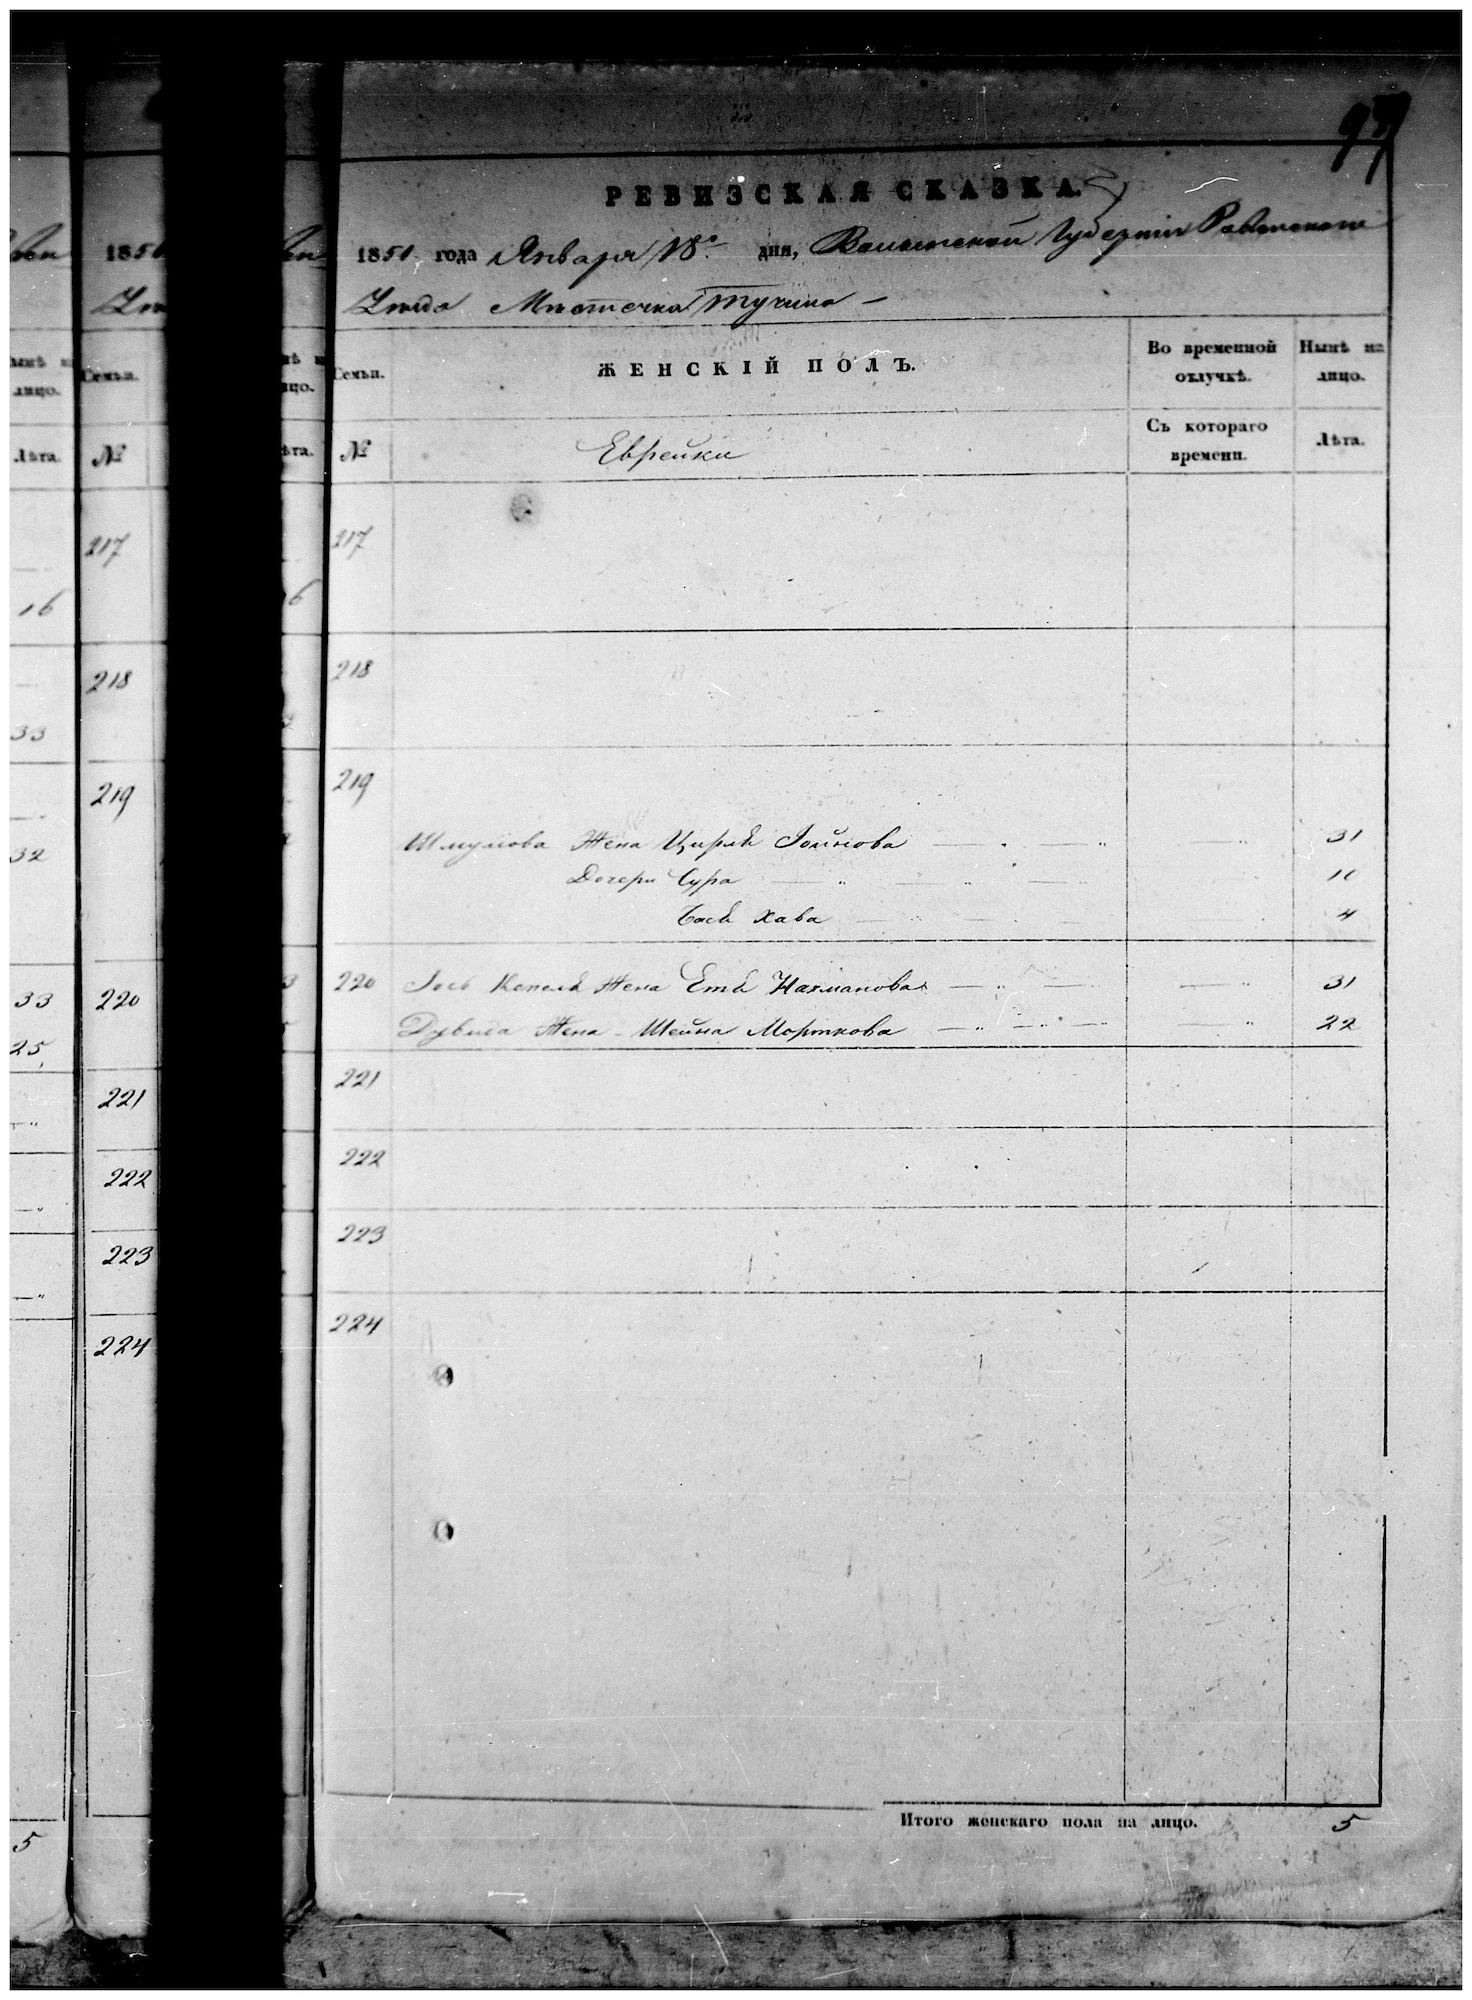 РЕВИЗСКАЯ СКАЗКА.
1851 года Января 18. дня, Волынской Губерніи Ровенского
Уезда Местечка Тучина —
Семьи. ЖЕНСКІЙ ПОЛЪ. Во временной отлучкѣ. Нынѣ на лицо.
№ Еврейки Съ котораго времени. Лѣта.
217
218
219
Шмулова Жена Цирля Іойнова 31
Дочери Сура
Бася Хава 4
220 Іось Копеля Жена Етя Нахманова 31
Дувида Жена Шейна Морткова 22
221
222
223
224
Итого женскаго пола на лицо. 5
1850
Семьи.
№
217
218
219
220
221
222
223
224
лицо.
Лѣта.
16
33
32
33
25
5